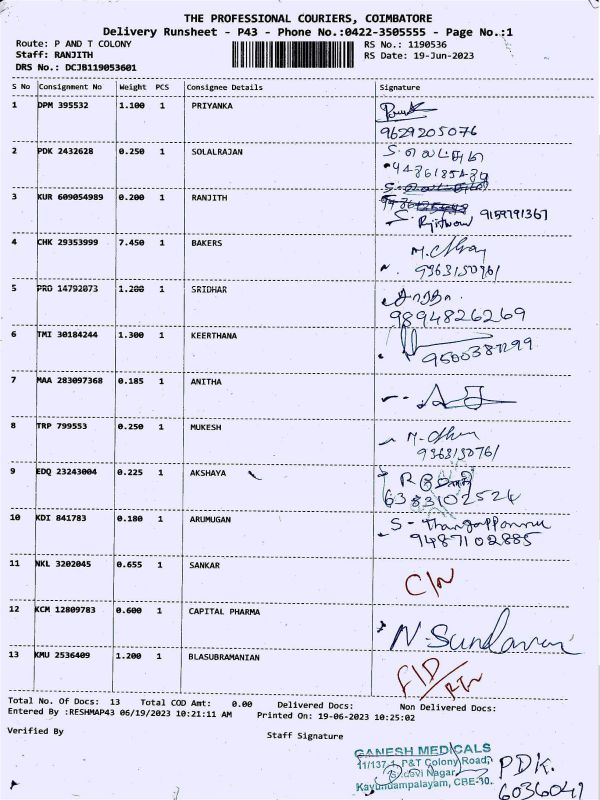 THE PROFESSIONAL COURIERS, COIMBATORE
Delivery Runsheet - P43 - Phone No.:0422-3505555 - Page No.:1
Route: P AND T COLONY
Staff: RANJITH
DRS No.: DCJB119053601
RS No.: 1190536
RS Date: 19-Jun-2023
S No Consignment No Weight PCS Consignee Details Signature
1 DPM 395532 1.100 1 PRIYANKA
9629205076
2 PDK 2432628 0.250 1 SOLALRAJAN
3 KUR 609054989 0.200 1 RANJITH
9159791367
4 CHK 29353999 7.450 1 BAKERS
9363150761
5 PRO 14792073 1.200 1 SRIDHAR
9894826269
6 TMI 30184244 1.300 1 KEERTHANA
9500387299
7 MAA 283097368 0.185 1 ANITHA
8 TRP 799553 0.250 1 MUKESH
936315076/
9 EDQ 23243004 0.225 1 AKSHAYA
6383102524
10 KDI 841783 0.180 1 ARUMUGAN
9487102885
11 NKL 3202045 0.655 1 SANKAR
12 KCM 12809783 0.600 1 CAPITAL PHARMA
N. Sundaram
13 KMU 2536409 1.200 1 BLASUBRAMANIAN
Total No. Of Docs: 13 Total COD Amt: 0.00 Delivered Docs: Non Delivered Docs:
Entered By :RESHMAP43 06/19/2023 10:21:11 AM Printed On: 19-06-2023 10:25:02
Verified By
Staff Signature
GANESH MEDICALS
11/137-1, P&T Colony Road,
Nagar,
Kavundampalayam, CBE-30.
PDK.
6036041